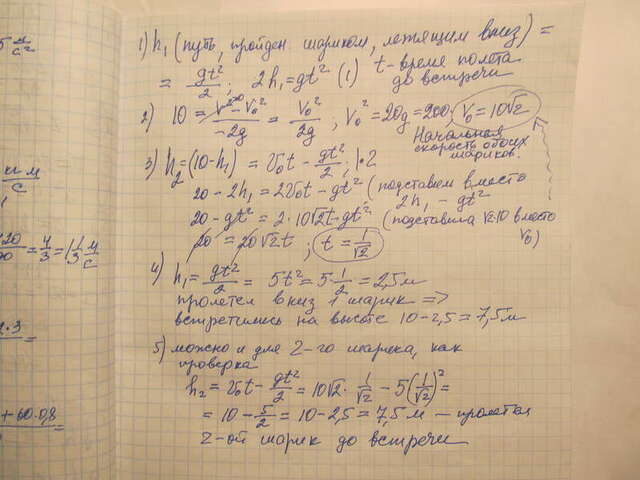 5 м/с²
кг м/с
120/90 = 4/3 = 1 1/3 м/с
2·3 =
+ 60·0,8 =
1) h₁ (путь, пройден. шариком, летящим вниз) =
= gt²/2 ; 2h₁ = gt² (1) t - время полёта
до встречи
2) 10 = (V² - V₀²)/(-2g) = V₀²/2g ; V₀² = 20g = 200. V₀ = 10√2
Начальная
скорость обоих
шариков.
3) h₂ = (10 - h₁) = V₀t - gt²/2 ; |·2
20 - 2h₁ = 2V₀t - gt² (подставим вместо
2h₁ - gt²)
20 - gt² = 2·10√2t - gt² (подставила √2·10 вместо
V₀)
20 = 20√2t ; t = 1/√2
4) h₁ = gt²/2 = 5t² = 5·1/2 = 2,5 м
пролетел вниз 1 шарик =>
встретились на высоте 10 - 2,5 = 7,5 м
5) можно и для 2-го шарика, как
проверка
h₂ = V₀t - gt²/2 = 10√2 · 1/√2 - 5(1/√2)² =
= 10 - 5/2 = 10 - 2,5 = 7,5 м - пролетел
2-ой шарик до встречи